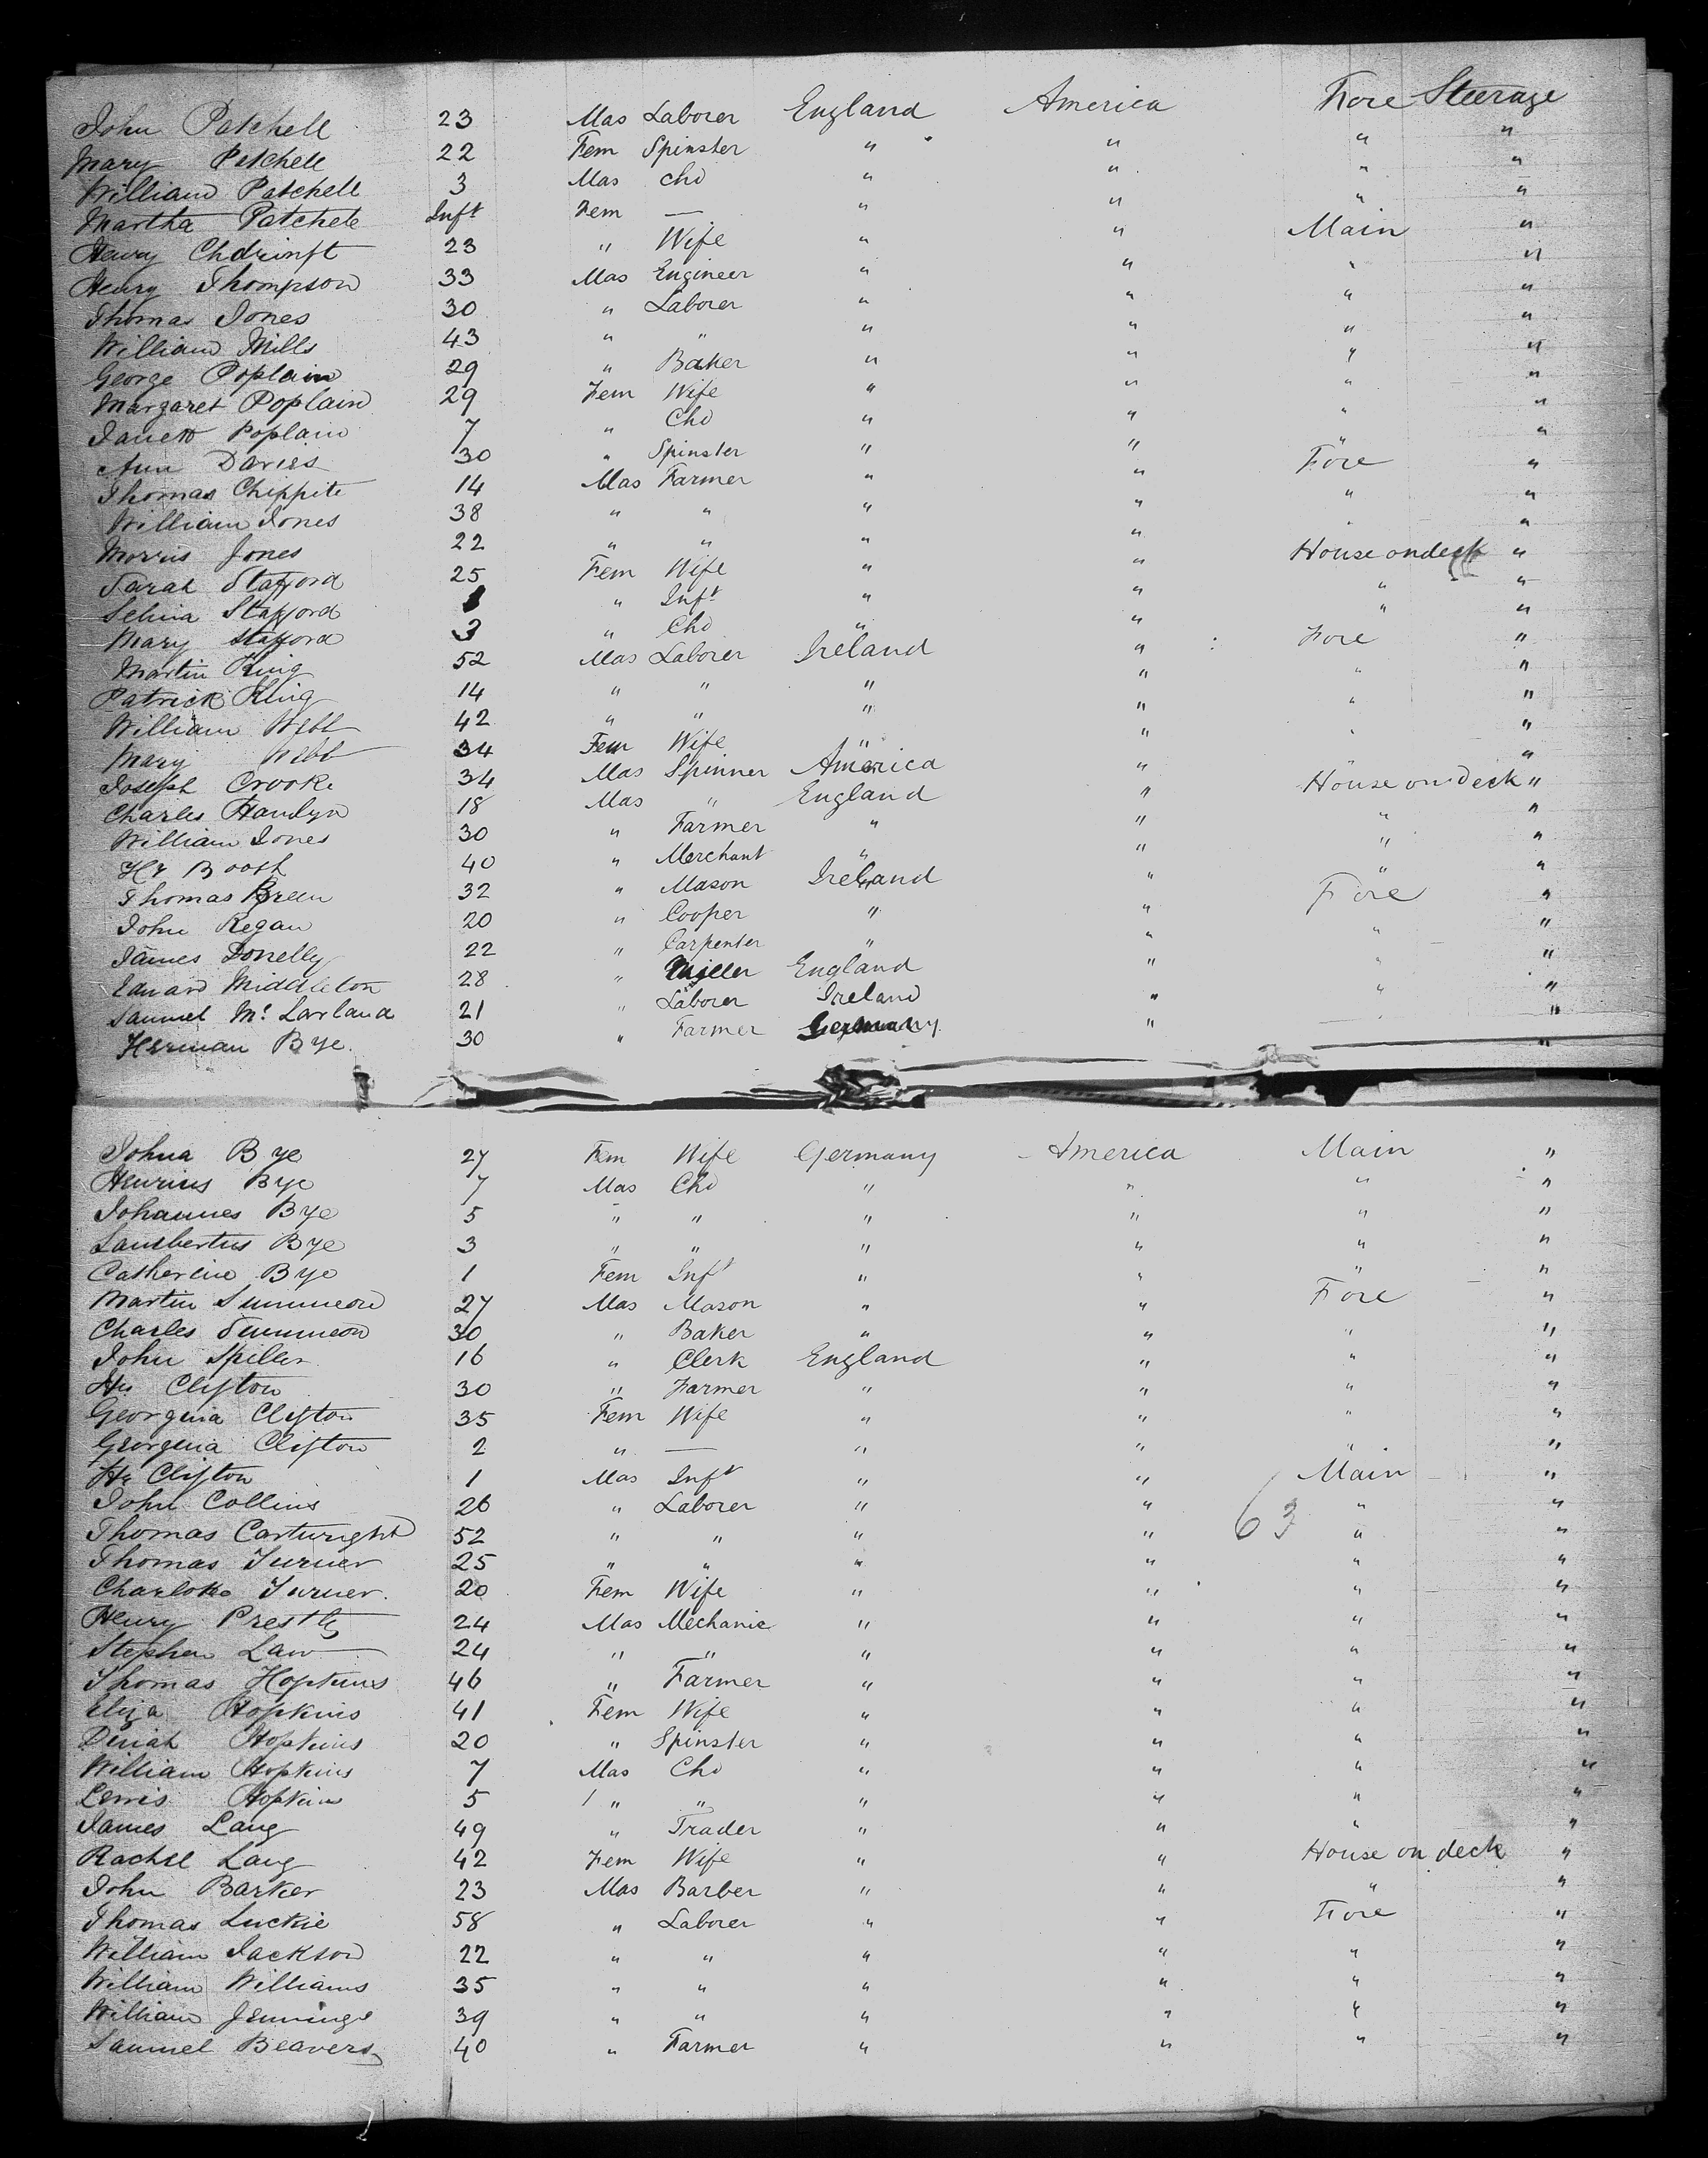 John Patchell 23 Mas Laborer England America Fore Steerage
Mary Patchell 22 Fem Spinster " " " "
William Patchell 3 Mas Chd " " " "
Martha Patchell Inft Fem — " " " "
Henry 23 " Wife " " Main "
Henry Thompson 33 Mas Engineer " " " "
Thomas Jones 30 " Laborer " " " "
William Mills 43 " " " " " "
George Poplain 29 " Baker " " " "
Margaret Poplain 29 Fem Wife " " " "
Janett Poplain 7 " Chd " " " "
Ann Davies 30 " Spinster " " Fore "
Thomas Chippite 14 Mas Farmer " " " "
William Jones 38 " " " " " "
Morris Jones 22 " " " " House on deck "
Sarah Stafford 25 Fem Wife " " " "
Selina Stafford 1 " Inft " " " "
Mary Stafford 3 " Chd " " Fore "
Martin King 52 Mas Laborer Ireland " " "
Patrick King 14 " " " " " "
William Webb 42 " " " " " "
Mary Webb 34 Fem Wife " " "
Joseph Crooke 34 Mas Spinner America " House on deck "
Charles Hamlyn 18 Mas " England " " "
William Jones 30 " Farmer " " " "
Hy Booth 40 " Merchant " " " "
Thomas Breen 32 " Mason Ireland " Fore "
John Regan 20 " Cooper " " " "
James Donelly 22 " Carpenter " " " "
Edward Middleton 28 " Miller England " " "
Samuel Mc Larland 21 " Laborer Ireland " "
Herman Bye 30 " Farmer Germany " "
Johna Bye 27 Fem Wife Germany America Main "
Henricus Bye 7 Mas Chd " " " "
Johannes Bye 5 " " " " " "
Lambertus Bye 3 " " " " " "
Catherine Bye 1 Fem Inft " " " "
Martin Summeon 27 Mas Mason " " Fore "
Charles Summeon 30 " Baker " " " "
John Spiller 16 " Clerk England " " "
Hy Clifton 30 " Farmer " " " "
Georgina Clifton 35 Fem Wife " " " "
Georgena Clifton 2 " — " " " "
Hy Clifton 1 Mas Inft " " Main "
John Collins 26 " Laborer " " 63 " "
Thomas Cartwright 52 " " " " " "
Thomas Turner 25 " " " " " "
Charlotte Turner 20 Fem Wife " " " "
Henry Prestly 24 Mas Mechanic " " " "
Stephen Law 24 " " " " " "
Thomas Hopkins 46 " Farmer " " " "
Eliza Hopkins 41 Fem Wife " " " "
Dinah Hopkins 20 " Spinster " " " "
William Hopkins 7 Mas Chd " " " "
Lewis Hopkins 5 " " " " " "
James Lang 49 " Trader " " " "
Rachel Lang 42 Fem Wife " " House on deck "
John Barker 23 Mas Barber " " " "
Thomas Luckie 58 " Laborer " " Fore "
William Jackson 22 " " " " " "
William Williams 35 " " " " " "
William Jennings 39 " " " " " "
Samuel Beavers 40 " Farmer " " " "